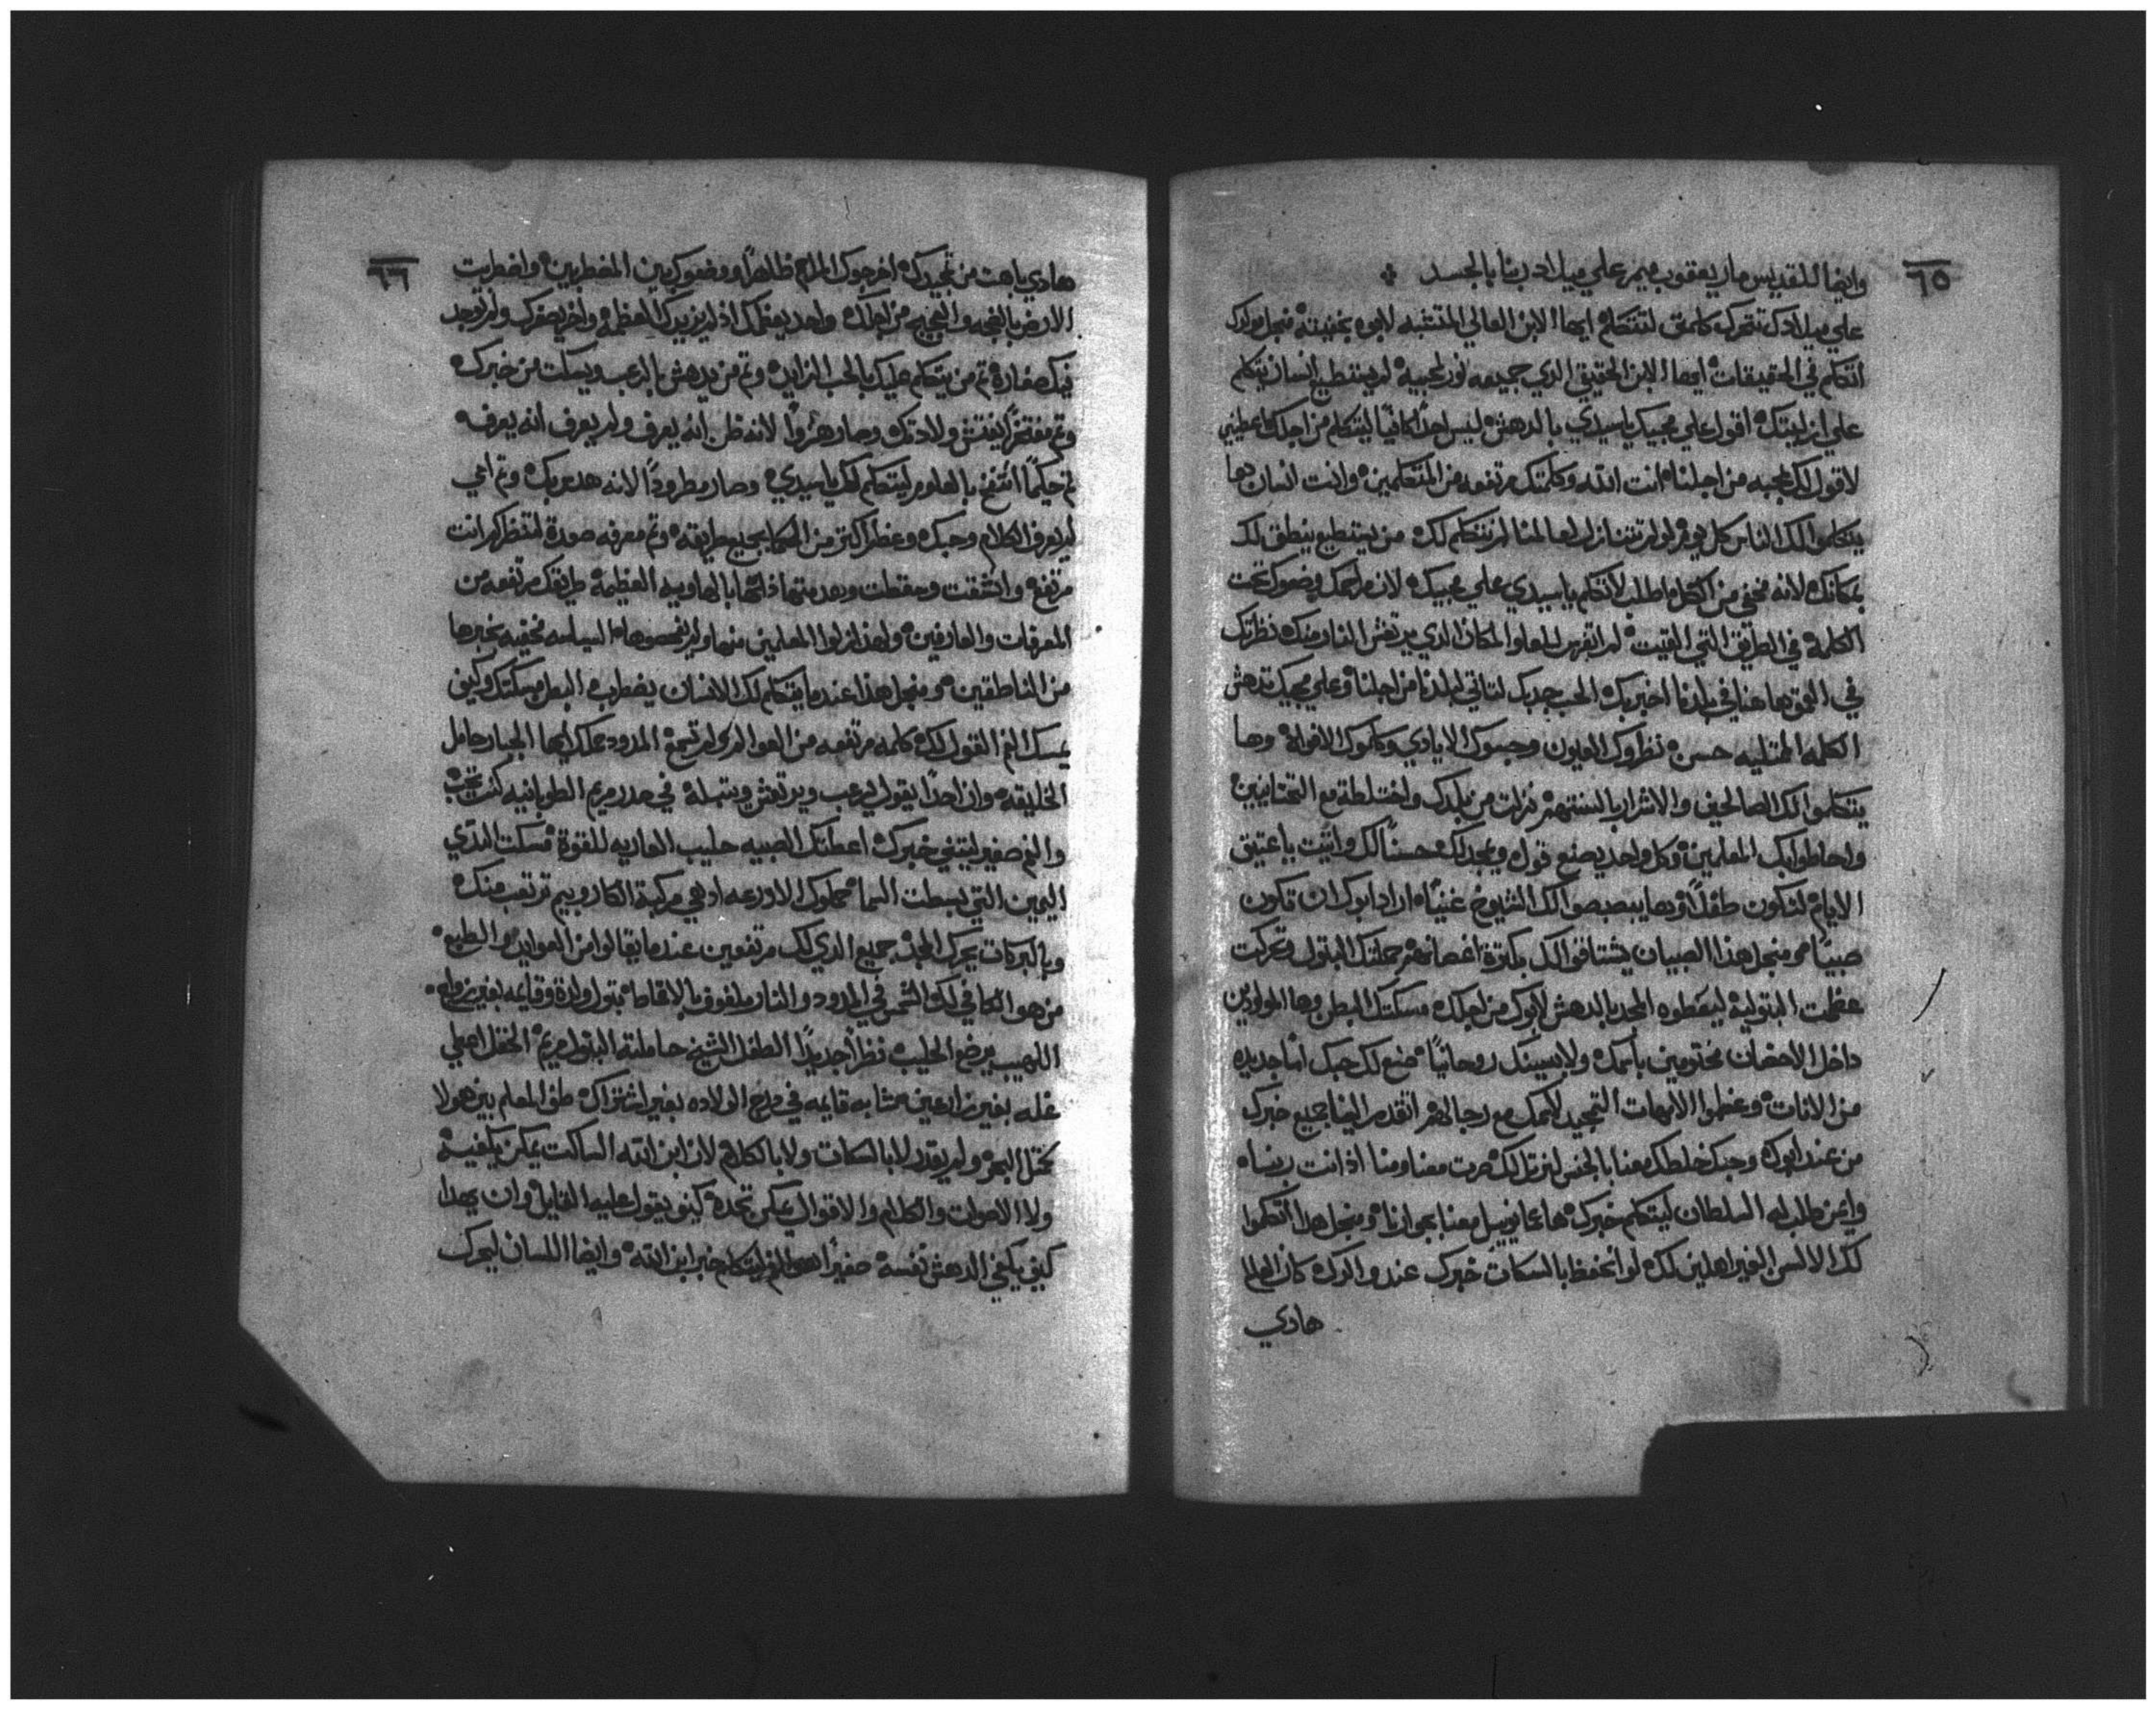 ٦٥
وايضا للقديس مار يعقوب ميمر علي ميلاد ربنا بالجسد
علي ميلادك تتحرك كلمتي لتتكلم ايها الابن العالي المتشبه لابوه بخفيته منجل مولدك
اتكلم في الحقيقات ايها الابن الحقيقي الذي جميعه نور لمحبيه لم يستطيع انسان يتكلم
علي ازليتك اقول علي مجيك يا سيدي بالدهش ليس احدا كافيا ليتكلم من اجلك
لاقول لك عجبه من اجلنا انت الله وكلمتك مرتفعه من المتكلمين وانت انسان ها
يتكلموا لك الناس كل يوم لو لم تتنازل لعالمنا لم نتكلم لك من يستطيع ينطق لك
بمكانك لانه مخفي من الكل ما طلب لاتكلم يا سيدي علي مجيك لان
الكلمه في الطريق التي اتيت لم اتفرس للعلو المكان الذي يرتعش النار منك نظرتك
في العمق ها هنا في بلدنا اخبر بك الحب جدبك لتاتي لبلدنا من اجلنا وعلي مجيك تدهش
الكلمه الممتليه حسن نظروك العيون وجسوك الايادي وكلموك الافواه وها
يتكلموا لك الصالحين والاشرار بالسنتهم نزلت من بلدك واختلطة مع التحتانيين
واحاطوا بك المعلمين وكل واحد يصنع قوله ويمجد لك حسنا لك واتيت يا عتيق
الايام لتكون طفلا وها يبصبصوا لك الشيوخ غنيا اراد ابوك ان تكون
صبيا منجل هذا الصبيان يشتاقوا لك بكترة اغصانهم حملتك البتول وتحركت
عظمت البتوليه ليعطوه المجد بالدهش لابوك من اجلك مسكتك البطن وها المولودين
داخل الاحضان مختومين باسمك ولابسينك روحانيا صنع لك حبك اما جديده
من الاناث وعظموا الامهات التمجيد لاسمك مع رجالهم اتقدم الينا بجميع خبرك
من عند ابوك وحبك خلطك معنا بالجنس لنرتل لك صرت معنا ومنا اذ انت ربنا
وايمن طلب له السلطان ليتكلم خبرك ها عمانوييل معنا بجوارنا ومنجل هذا اتكلموا
لك الالسن الغير اهلين لك لو انحفظ بالسكات خبرك عند والدك كان العالم
هادي
٦٦
هادي باهت من تمجيدك اخرجوك المداح ظاهرا ووضعوك بين المضطربين واضطربت
الارض بالضجه والعجيج من اجلك واحد يعظمك اذ لم يزيدك العظمه واخر يصغرك ولم يوجد
فيك صغاره تم من يتكلم عليك بالحب المزايد وتم من يدهش بالرعب ويسكت من خبرك
وتم مفتخر ليفتش ولادتك وصار هزوا لانه ظن انه يعرف ولم يعرف انه يعرفه
تم حكيما انتفخ بالعلوم ليتكلم لك يا سيدي وصار مطرودا لانه هدم وتم امي
لم يعرف الكلام وحبك وعظم اكتر من الحكما بجميع طرايقه وتم معرفه صورة لتنظرك انت
مرتفع وانشقت وسقطت وهدمتها ذاتها بالهاويه العظيمه طريقك مرتفعه من
المعرفات والعارفين ولهذا نزلوا المعلمين منها ولم يفحصوها السياسه مخفيه بخبرها
من الناطقين ومنجل هذا عندما يتكلم لك الانسان يضطرب البطن مسكتك وكيف
يمسك الفم القول لك كلمه مرتفعه من العوالم لم تسعه المدود يملك ايها الجبار حامل
الخليقه وان احدا يقول يرعب ويرتعش ويتبله في حدر مريم الطوبانيه كنت تحب
والفم صغير ليتفي خبرك اعطتك الصبيه حليب العاريه للقوة مسكت الثدي
اليمين التي بسطت السما حملوك الادرعه اوهي مركبة الكاروبيم ترتعب منك
وبالبركات يحرك المجد جميع الذي لك مرتفعين عندما يقالوا من العوايد والطبع
من هو الكافي لك الشمس في المدود والنار ملفوف بالاقماط بتول والدة وقايمه بغير زواج
اللهيب يرضع الحليب نظرا جديدا الطفل الشيخ حاملته البتول مريم الحقل اعطي
غله بغير زارعين متشابه قايمه في درج الولاده بغير اشتراك طفل المعلم بين هولا
يختل البهر ولم يقدر لا بالسكات ولا بالكلام لان ابن الله الساكت يمكن يكفيه
ولا الاصوات والكلام والاقوال يمكن تحده كيف يقول عليه القايل وان يهدا
كيف يكفي الدهش نفسه صغيرا هو الفم ليتكلم خبر ابن الله وايضا اللسان ليحرك